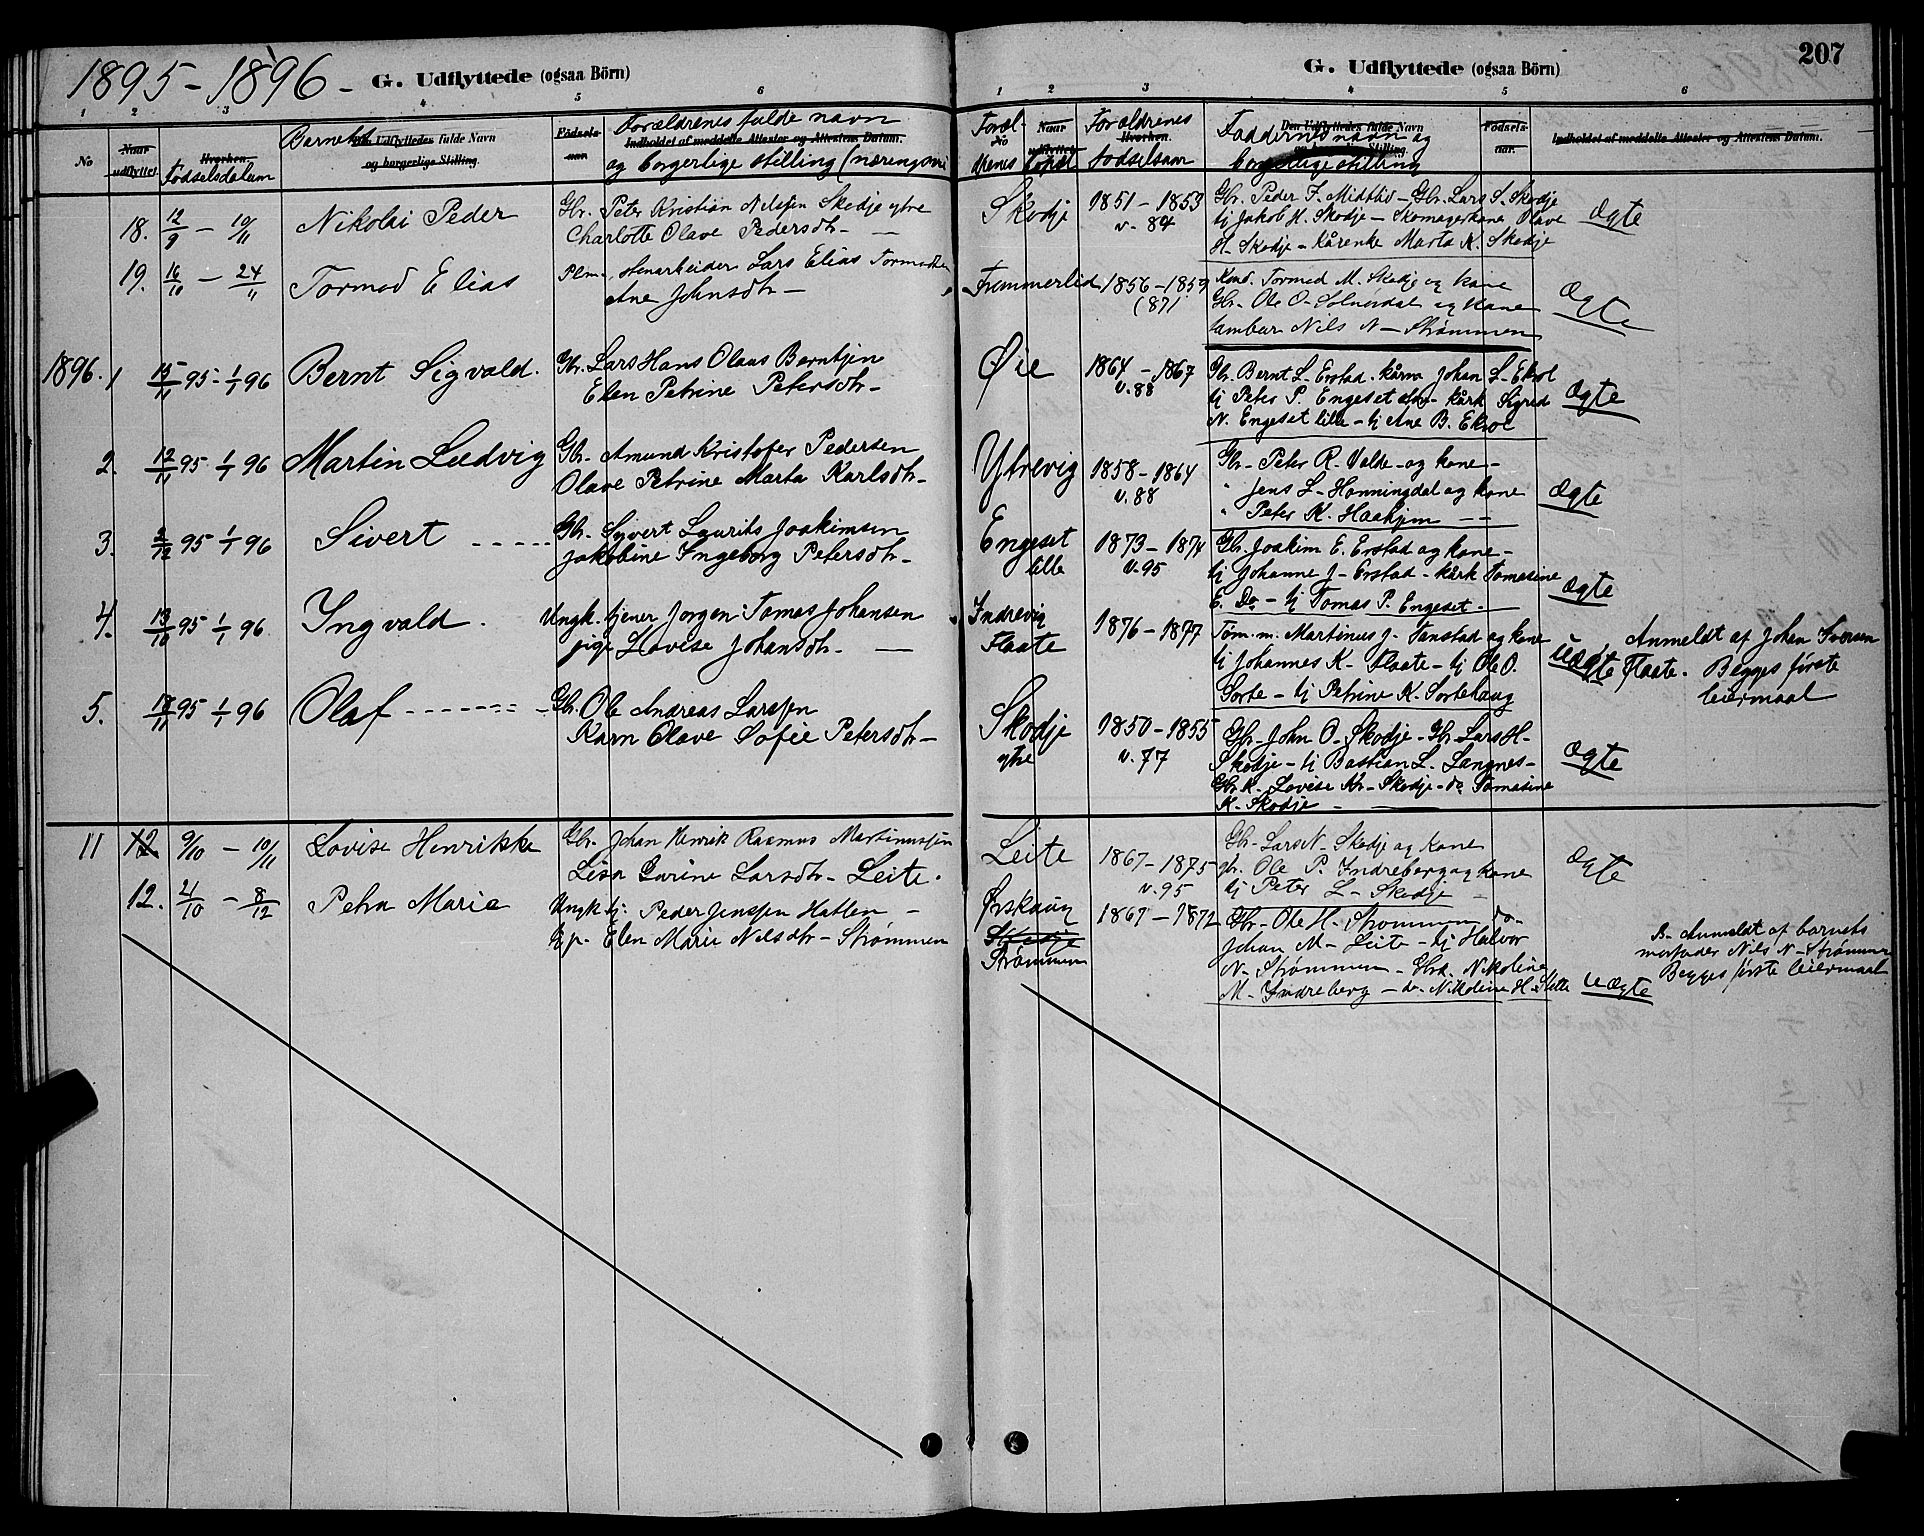 1895-1896 -
G. Udflyttede (ogsaa Börn)
1 2 3 4 5 6
No
Naar udflyttet
Hvorhen.
Födselsdatum
Barnets
Den Udflyttedes fulde Navn
og borgerlige Stilling.
Födsels-
aar.
Forældrenes fulde navn
Indholdet af meddelte Attester og Attestens Datum.
og borgerlige stilling (næringsvei
18. 12/9 - 10/11 Nikolai Peder
Gbr. Peter Kristian Nilsen Skodje ytre
Charlotte Olave Pedersdtr. —
19. 16/10 - 24/11 Tormod Elias
Plm. stenarbeider Lars Elias Tormodsen
Ane Johnsdtr —
1896. 1 15/11 95 - 1/1 96 Bernt Sigvald.
Gbr. Lars Hans Olaus Berntsen
Elen Petrine Petersdtr -
2. 12/11 95 1/1 96 Martin Ludvig
Gbr. Amund Kristofer Pedersen
Olave Petrine Marta Karlsdtr -
3. 2/12 95 1/1 96 Sivert - - - - -
Gbr. Syvert Laurits Joakimsen
Jakobine Ingeborg Petersdtr -
4. 13/10 95 1/1 96 Ingvald.
Ungk. tjener Jørgen Tomas Johansen
pige Lovise Johansdtr. —
5. 17/11 95 1/1 96 Olaf - - - - - - - -
Gbr. Ole Andreas Larssen
Karn Olave Sofie Petersdtr -
11 12. 9/10 - 10/11 Lovise Henrikke
Gbr. Johan Henrik Rasmus Martinussen
Lisa Gurine Larsdtr - Leite.
12. 21/10 - 8/12 Petra Marie
Ungk. tj. Peder Jenssen Hatlen -
Gp. Elen Marie Nilsdtr - Strømmen
207
G. Udflyttede (ogsaa Börn)
1 2 3 4 5 6
Foræl-
No
drenes
Naar udflyttet
bopæl
Forældrenes
Hvorhen.
födselsaar
Faddernes navn og
Den Udflyttedes fulde Navn
borgerlige stilling
Födsels-
aar.
Indholdet af meddelte Attester og Attestens Datum.
Skodje
1851 - 1853
v. 84
Gbr. Peder J. Midtlid - Gbr. Lars S. Skodje
tj Jakob H. Skodje - Skomagerkone Olave
H. Skodje - Kårenke Marta K. Skodje
Ægte
Frammerlid
1856 - 1859
(87)
Kmd. Tormod M. Skodje og kone
Gbr. Ole O. Solnørdal og kone
tambur Nils N - Strømmen
Ægte
Øie
1864 - 1867
v. 88
Gbr. Bernt L. Erstad. kårm Johan L. Ekrol
tj Peter P. Engeset kårk Sigrid
N. Engeset lille - tj Ane B. Ekrol
Ægte
Ytrevig
1858 - 1864
v. 88
Gbr - Peter R. Valde - og kone -
" Jens L - Honningdal og kone
" Peter K. Haahjem - -
Ægte
Engeset
lille
1873 - 1874
v. 95
Gbr. Joakim E. Erstad og kone -
tj Johanne J - Erstad - kårk Tomasine
E. Do - tj Tomas P. Engeset. -
Ægte
Indrevig
Flaate
1876 - 1877
Tøm. m. Martinus J. Tanstad og kone
tj Johannes K - Flaate - tj Ole O.
Sorte - tj Petrine K. Sortehaug
Uægte
Anmeldt af Johan Iversen
Flaate. Begges første
leiermaal
Skodje
ytre
1850 - 1855
v. 77
Gbr - John O. Skodje - Gbr Lars H -
Skodje - tj Bastian L. Langnes -
Gbr. k. Lovise Kr - Skodje - do Tomasine
K. Skodje -
Ægte
Leite
1867 - 1875
v. 95
Gbr - Lars N - Skodje og kone
gbr. Ole P. Indreberg og kone
tj Peter L - Skodje -
Ægte
Ørskaug
Skodje
Strømmen
1867 - 1872
Gbr - Ole H. Strømmen do -
Johan M - Leite - tj Halvor
N - Strømmen - Gbrd. Nikoline
M - Indreberg - do. Nikoline H. Stette
Uægte
B. Anmeldt af barnets
morfader Nils N - Strømmen
Begges første leiermaal